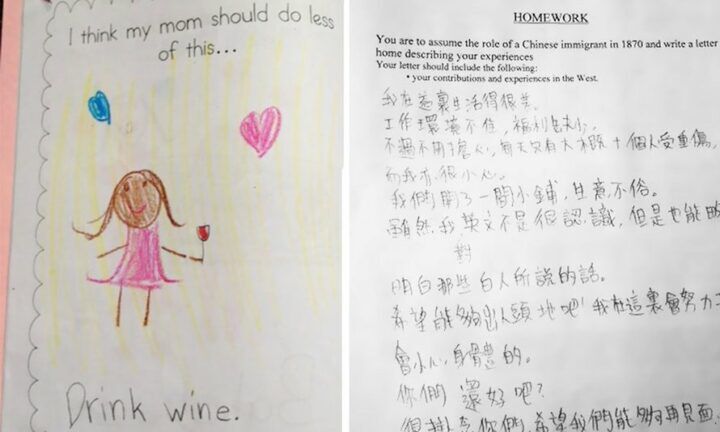 I think my mom should do less
of this...
Drink wine.
HOMEWORK
You are to assume the role of a Chinese immigrant in 1870 and write a letter
home describing your experiences
Your letter should include the following:
• your contributions and experiences in the West.
我在這裏生活得很苦。
工作環境不佳,福利缺少。
不過不用擔心,每天只有大概十個人受重傷,
而我有很小心。
我們開了一間小鋪,生意不俗。
雖然我英文不是很認識,但是也能夠
對
明白那些白人所說的話。
希望能夠出人頭地吧!我在這裏會努力
會小心身體的。
你們還好吧?
很掛念你們,希望我們能夠再見面